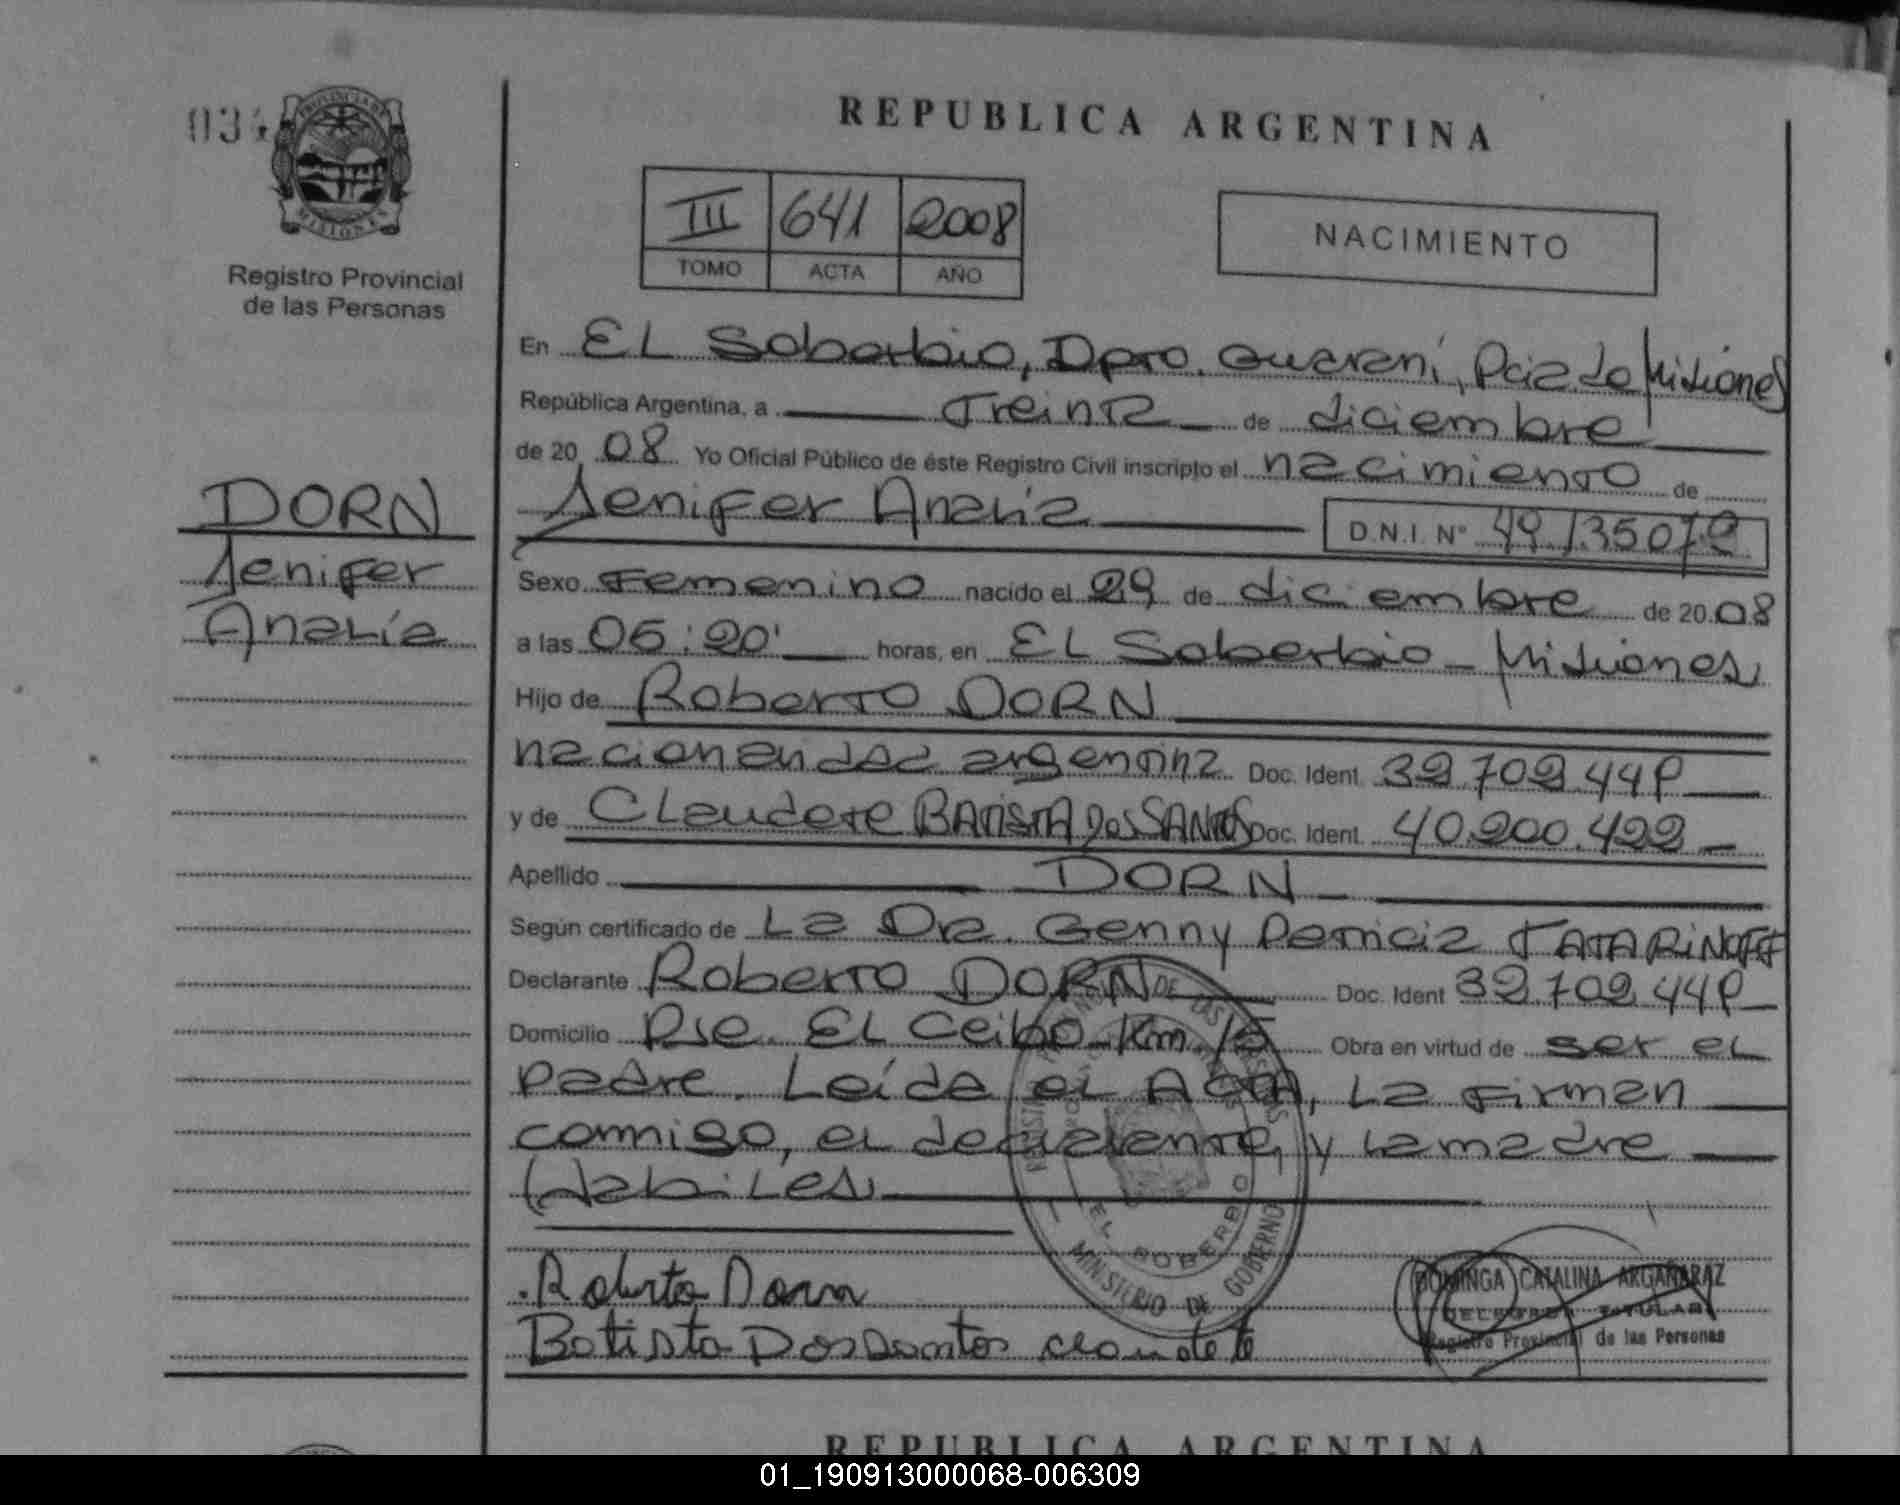 REPUBLICA ARGENTINA
PROVINCIA DE
MISIONES
Registro Provincial
de las Personas
III 641 2008
TOMO ACTA AÑO
NACIMIENTO
DORN
Jenifer
Analía
En EL Soberbio, Dpto. Guaraní, Pcia de Misiones
República Argentina, a Treinta de diciembre
de 20 08 Yo Oficial Público de éste Registro Civil inscripto el nacimiento de
Jenifer Analía D.N.I. Nº
Sexo Femenino nacido el 29 de diciembre de 20 08
a las 05:20' horas, en EL Soberbio - Misiones
Hijo de Roberto DORN
argentina Doc. Ident. 32.702.44
y de Claudete BATISTA DOS SANTOS Doc. Ident. 40.200.422
Apellido DORN
Según certificado de La Dra. Genny Patricia TATARINOFF
Declarante Roberto DORN Doc. Ident 32.702.44
Domicilio Pje. EL Ceibo Km 15 Obra en virtud de ser el
padre. Leída el Acta, La Firman
conmigo, el declarante, y la madre
Habiles
MINISTERIO DE GOBIERNO
EL SOBERBIO
Roberto Dorn
Batista Dos Santos Claudete
DOMINGA CATALINA ARGAÑARAZ
DELEGADA TITULAR
Registro Provincial de las Personas
REPUBLICA ARGENTINA
01_190913000068-006309